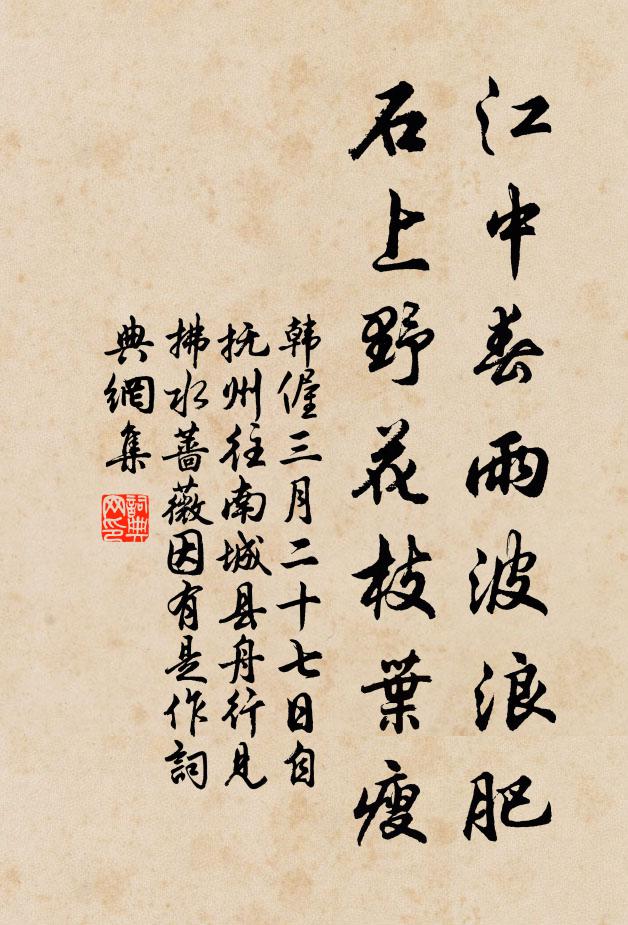 江中春雨波浪肥
石上野花枝葉瘦
韩偓三月二十七日自
抚州往南城县舟行见
拂水蔷薇因有是作詞
典網集
詞典網印